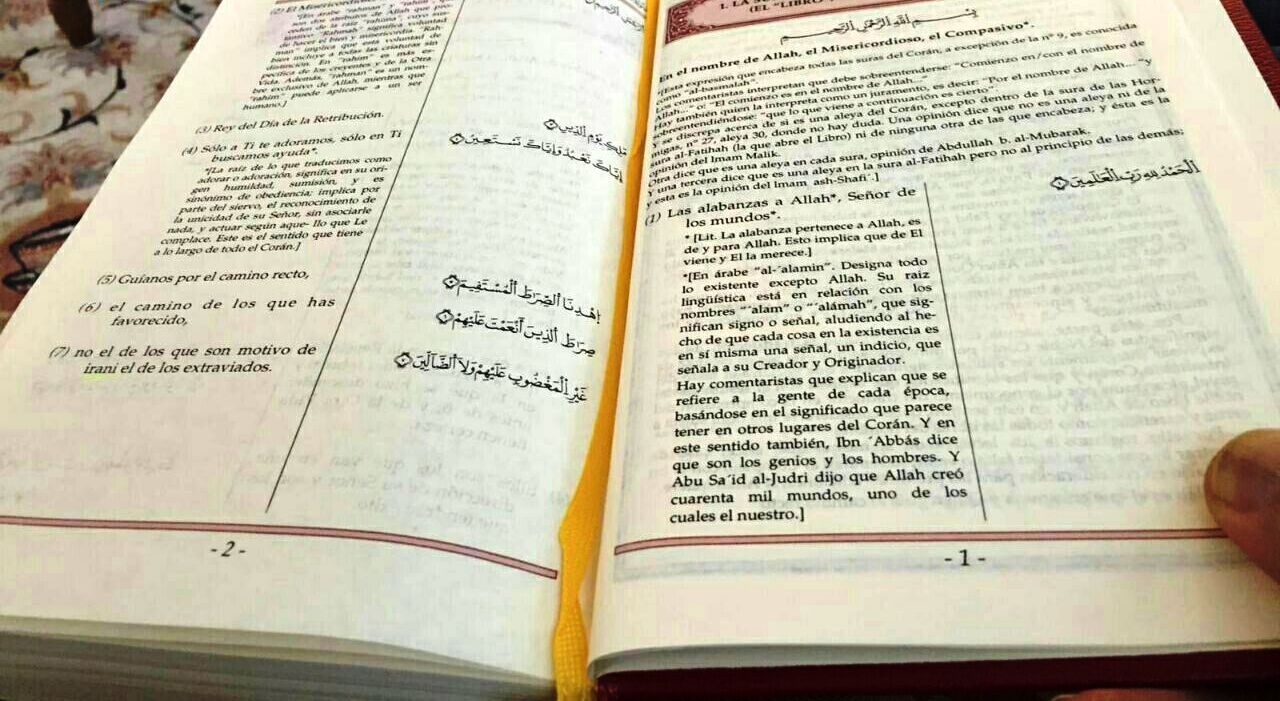 1. LA
(EL "LIBRO
بِسْمِ اللَّهِ الرَّحْمَٰنِ الرَّحِيمِ
En el nombre de Allah, el Misericordioso, el Compasivo*.
*[Esta expresión que encabeza todas las suras del Corán, a excepción de la nº 9, es conocida
como "al-basmalah".
Los comentaristas interpretan que debe sobreentenderse: "Comienzo en/con el nombre de
Allah..." o: "El comienzo es en el nombre de Allah..."
Hay también quien la interpreta como un juramento, es decir: "Por el nombre de Allah..." y
sobreentendiéndose: "que lo que viene a continuación es cierto".
Y se discrepa acerca de si es una aleya del Corán, excepto dentro de la sura de las Hor-
migas, nº 27, aleya 30, donde no hay duda. Una opinión dice que no es una aleya ni de la
sura al-Fatihah (la que abre el Libro) ni de ninguna otra de las que encabeza; y ésta es la
opinión del Imam Malik.
Otra dice que es una aleya en cada sura, opinión de Abdullah b. al-Mubarak.
Y una tercera dice que es una aleya en la sura al-Fatihah pero no al principio de las demás;
y esta es la opinión del Imam ash-Shafi´.]
(1) Las alabanzas a Allah*, Señor de
los mundos*.
* [Lit. La alabanza pertenece a Allah, es
de y para Allah. Esto implica que de El
viene y El la merece.]
*[En árabe "al-´alamin". Designa todo
lo existente excepto Allah. Su raiz
lingüística está en relación con los
nombres "´alam" o "´alámah", que sig-
nifican signo o señal, aludiendo al he-
cho de que cada cosa en la existencia es
en sí misma una señal, un indicio, que
señala a su Creador y Originador.
Hay comentaristas que explican que se
refiere a la gente de cada época,
basándose en el significado que parece
tener en otros lugares del Corán. Y en
este sentido también, Ibn ´Abbás dice
que son los genios y los hombres. Y
Abu Sa´id al-Judri dijo que Allah creó
cuarenta mil mundos, uno de los
cuales el nuestro.]
الْحَمْدُ لِلَّهِ رَبِّ الْعَالَمِينَ
- 1 -
(2) El Misericordioso
*[En árabe "rahman" y "rahim"
son dos atributos de Allah que pro-
ceden de la raíz "rahima", cuyo sus-
tantivo: "Rahmah" significa voluntad
de hacer el bien y misericordia. "Rah-
man" implica que esta voluntad de
bien incluye a todas las criaturas sin
distinción. En "rahim" es más es-
pecífica de los creyentes y de la Otra
Vida. Además, "rahman" es un nom-
bre exclusivo de Allah, mientras que
"rahim" puede aplicarse a un ser
humano.]
(3) Rey del Día de la Retribución.
(4) Sólo a Ti te adoramos, sólo en Ti
buscamos ayuda*.
*[La raíz de lo que traducimos como
adorar o adoración, significa en su ori-
gen humildad, sumisión, y es
sinónimo de obediencia; implica por
parte del siervo, el reconocimiento de
la unicidad de su Señor, sin asociarle
nada, y actuar según aque- llo que Le
complace. Este es el sentido que tiene
a lo largo de todo el Corán.]
(5) Guíanos por el camino recto,
(6) el camino de los que has
favorecido,
(7) no el de los que son motivo de
irani el de los extraviados.
مَلِكِ يَوْمِ الدِّينِ
إِيَّاكَ نَعْبُدُ وَإِيَّاكَ نَسْتَعِينُ
اِهْدِنَا الصِّرَاطَ الْمُسْتَقِيمَ
صِرَاطَ الَّذِينَ أَنْعَمْتَ عَلَيْهِمْ
غَيْرِ الْمَغْضُوبِ عَلَيْهِمْ وَلَا الضَّالِّينَ
- 2 -